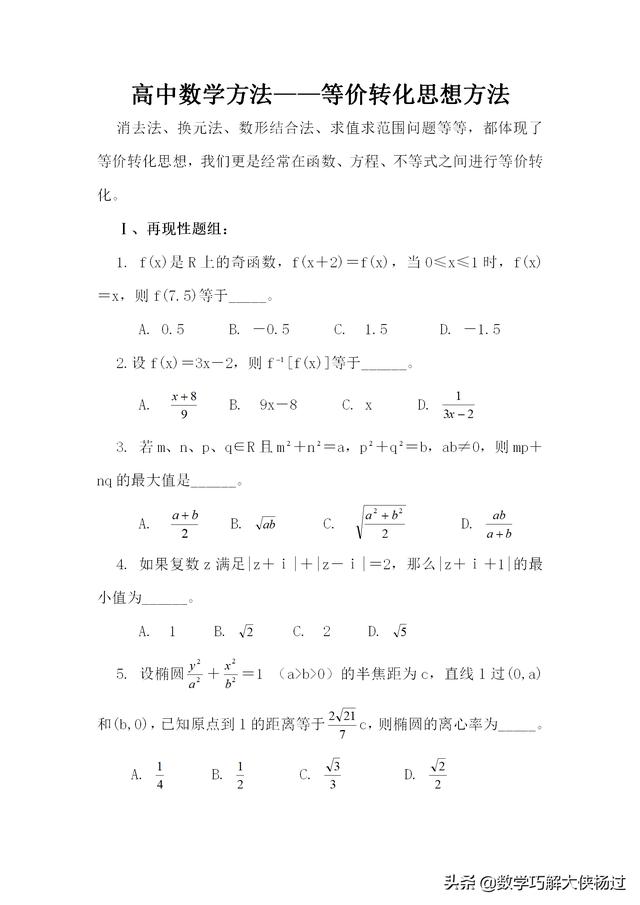 高中数学方法——等价转化思想方法
消去法、换元法、数形结合法、求值求范围问题等等，都体现了
等价转化思想，我们更是经常在函数、方程、不等式之间进行等价转
化。
Ⅰ、再现性题组：
1. f(x)是R上的奇函数，f(x＋2)＝f(x)，当0≤x≤1时，f(x)
＝x，则f(7.5)等于_____。
A. 0.5 B. －0.5 C. 1.5 D. －1.5
2.设f(x)＝3x－2，则f⁻¹[f(x)]等于______。
A. (x+8)/9 B. 9x－8 C. x D. 1/(3x－2)
3. 若m、n、p、q∈R且m²＋n²＝a，p²＋q²＝b，ab≠0，则mp＋
nq的最大值是______。
A. (a+b)/2 B. √(ab) C. √((a²+b²)/2) D. ab/(a+b)
4. 如果复数z满足|z＋i|＋|z－i|＝2，那么|z＋i＋1|的最
小值为______。
A. 1 B. √2 C. 2 D. √5
5. 设椭圆y²/a²＋x²/b²＝1 （a>b>0）的半焦距为c，直线l过(0,a)
和(b,0)，已知原点到l的距离等于2√21/7 c，则椭圆的离心率为_____。
A. 1/4 B. 1/2 C. √3/3 D. √2/2
头条 @数学巧解大侠杨过